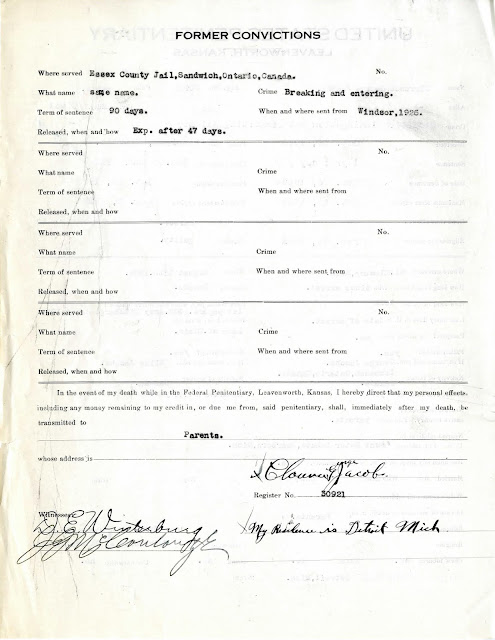 FORMER CONVICTIONS
Where served Essex County Jail, Sandwich, Ontario, Canada. No.
What name same name. Crime Breaking and entering.
Term of sentence 90 days. When and where sent from Windsor, 1926.
Released, when and how Exp. after 47 days.
Where served No.
What name Crime
Term of sentence When and where sent from
Released, when and how
Where served No.
What name Crime
Term of sentence When and where sent from
Released, when and how
Where served No.
What name Crime
Term of sentence When and where sent from
Released, when and how
In the event of my death while in the Federal Penitentiary, Leavenworth, Kansas, I hereby direct that my personal effects,
including any money remaining to my credit in, or due me from, said penitentiary, shall, immediately after my death, be
transmitted to
Parents.
whose address is
Jacob
Register No. 30921
Witnesses:
My Residence is Detroit Mich